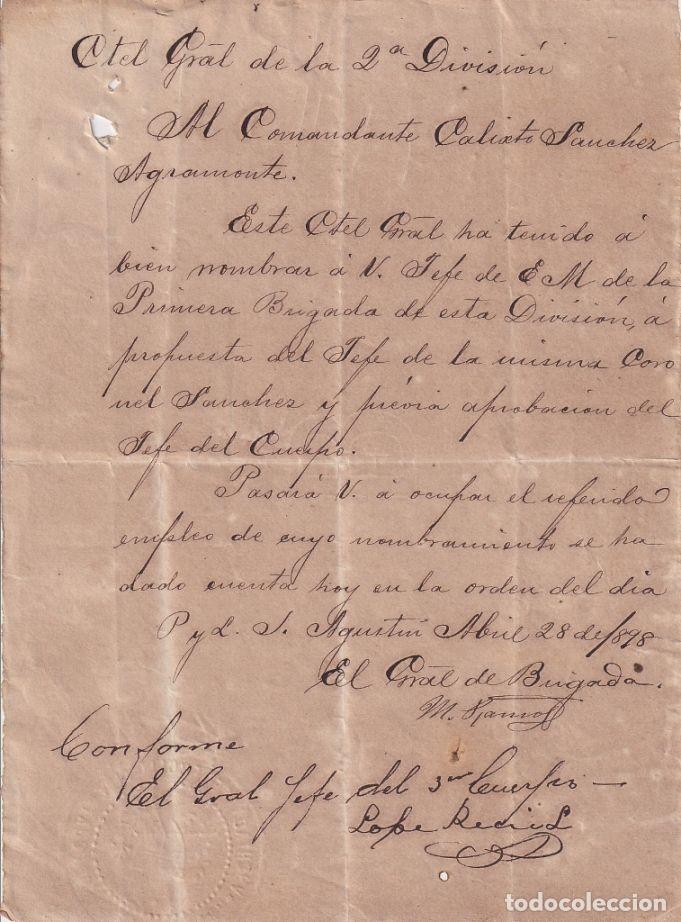 Ctel Gral de la 2ª División
Al Comandante Calixto Sanchez
Agramonte.
Este Ctel Gral ha tenido á
bien nombrar á V. Jefe de E M de la
Primera Brigada de esta División, á
propuesta del Jefe de la misma Coro
nel Sanchez y prévia aprobación del
Jefe del Cuerpo.
Pasará V. á ocupar el referido
empleo de cuyo nombramiento se ha
dado cuenta hoy en la orden del dia
P y L. S. Agustin Abril 28 de 1898
El Gral de Brigada.
M. Ramos
Conforme
El Gral Jefe del 3er Cuerpo—
Lope Recio L
todocoleccion